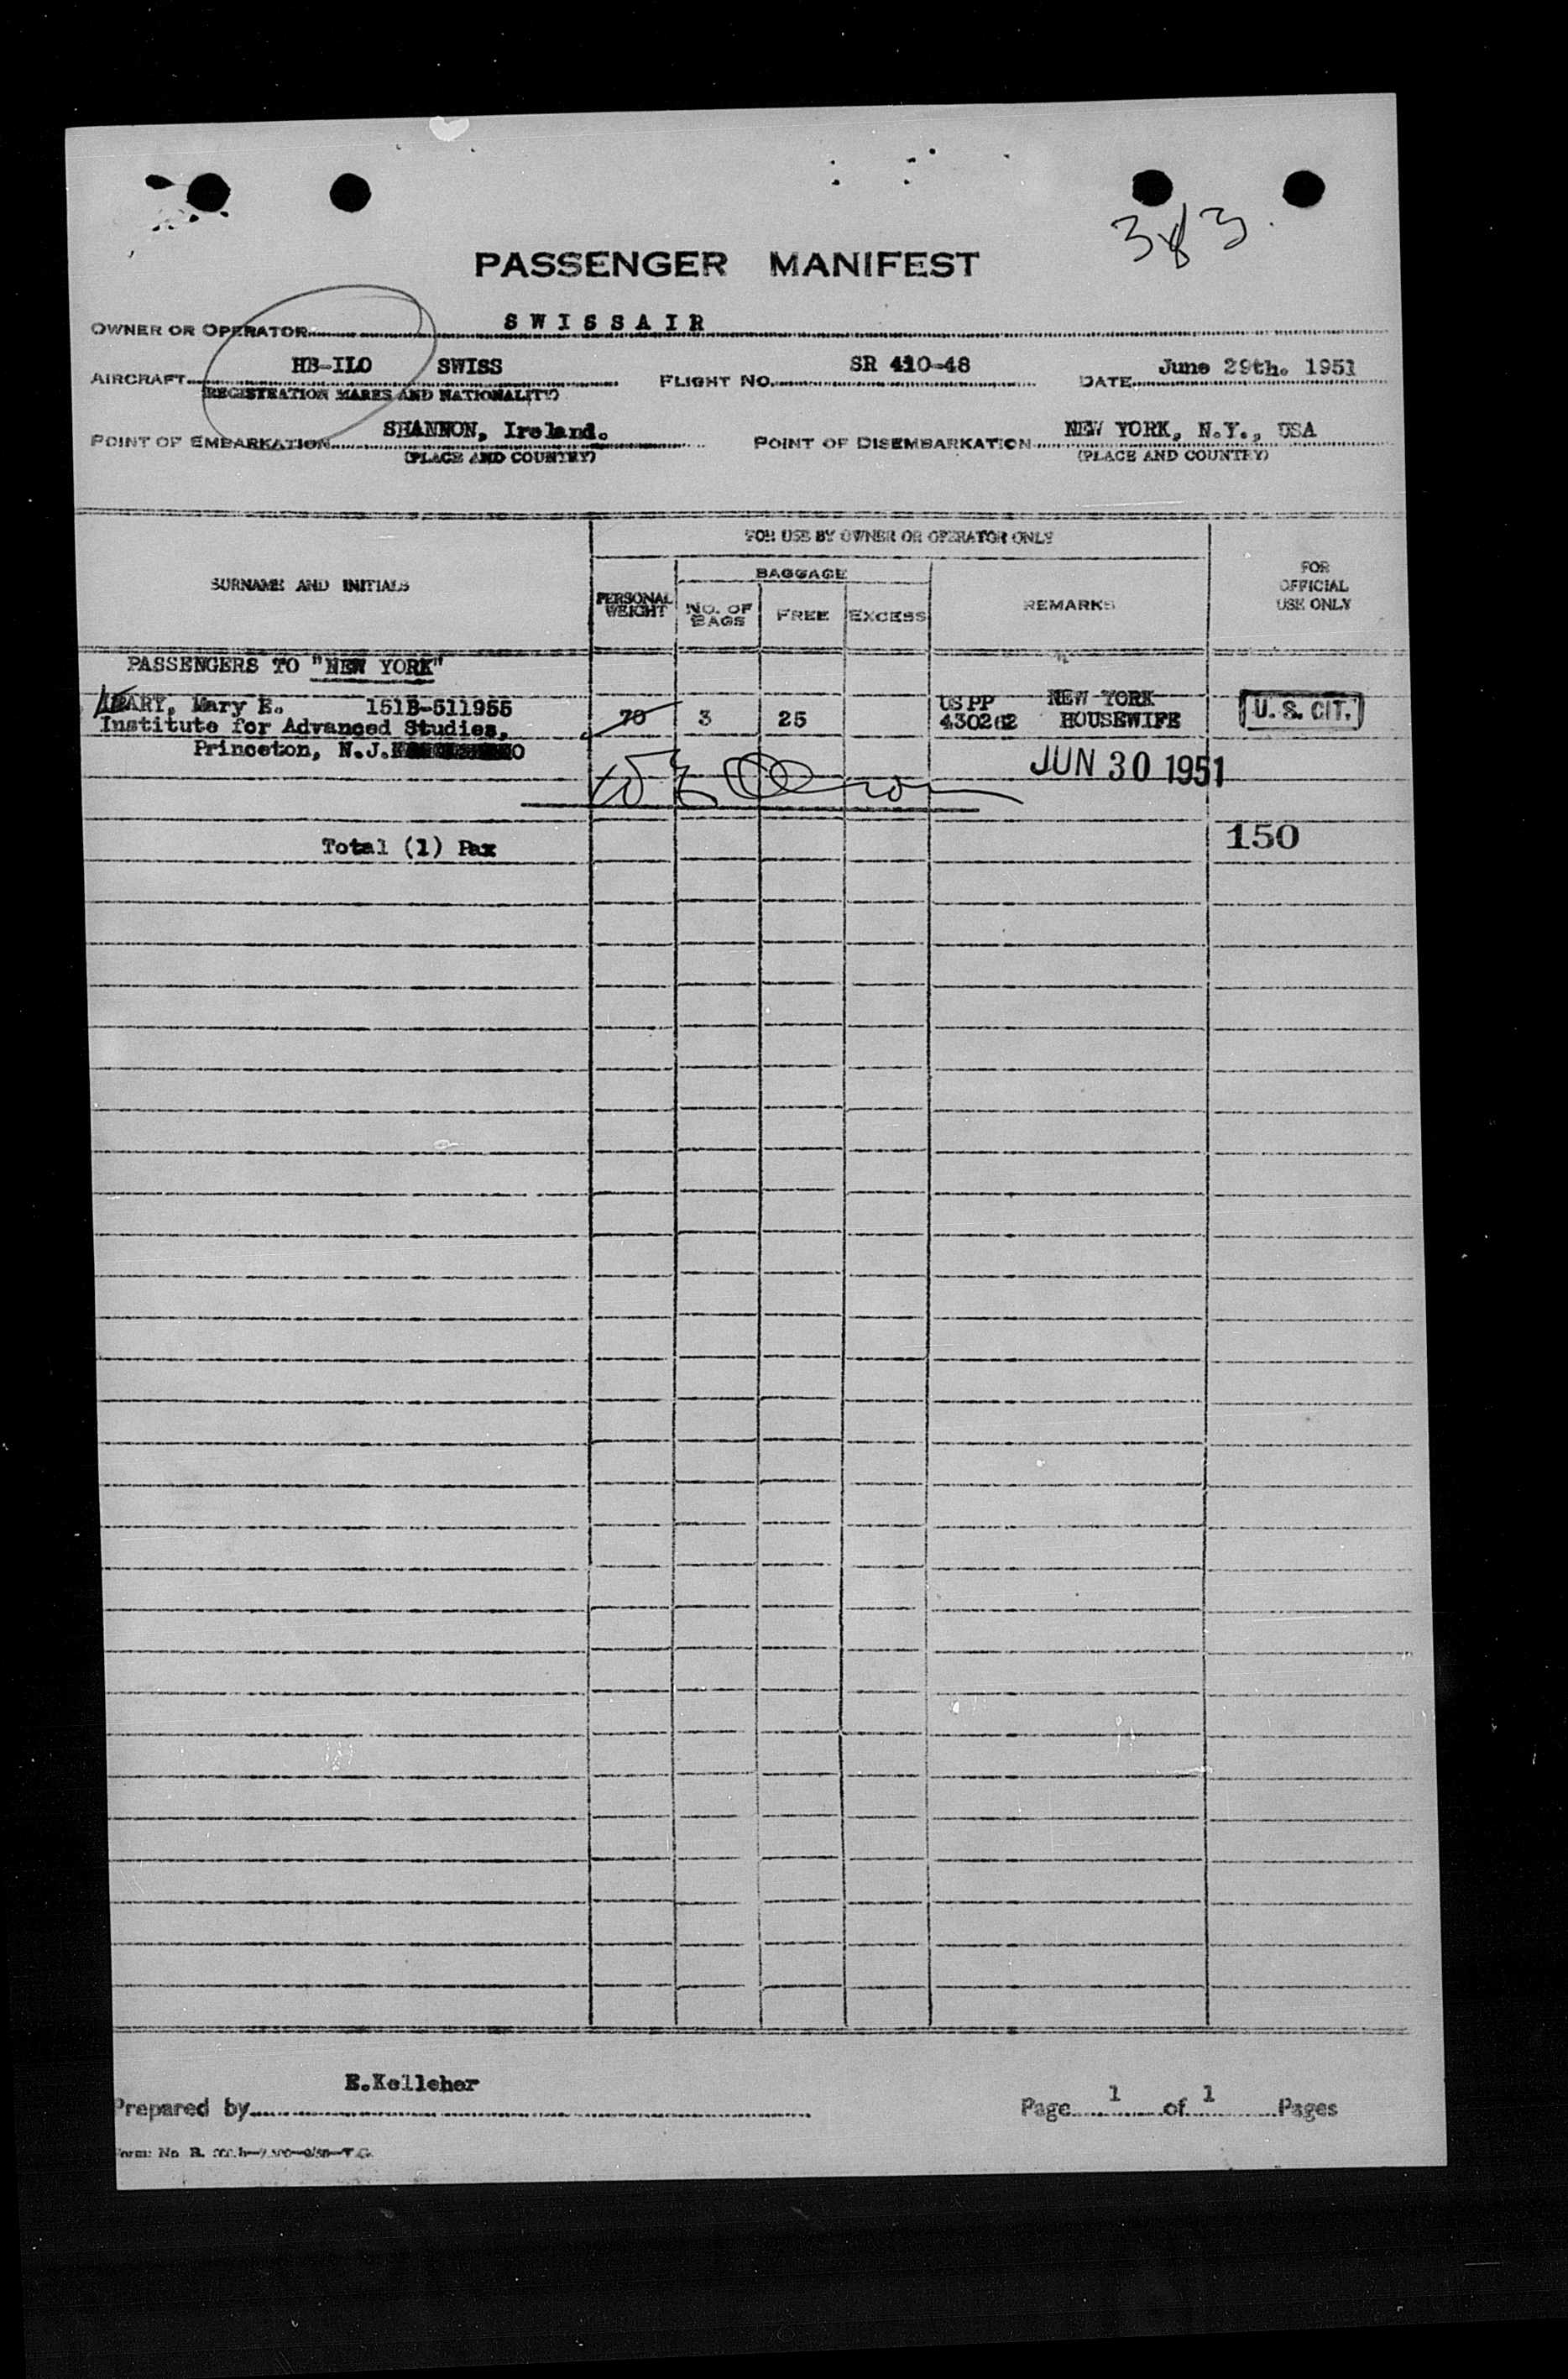 383.
PASSENGER MANIFEST
OWNER OR OPERATOR SWISSAIR
AIRCRAFT HB-ILO SWISS FLIGHT NO. SR 410-48 DATE June 29th. 1951
(REGISTRATION MARKS AND NATIONALITY)
POINT OF EMBARKATION SHANNON, Ireland. POINT OF DISEMBARKATION NEW YORK, N.Y., USA
(PLACE AND COUNTRY) (PLACE AND COUNTRY)
FOR USE BY OWNER OR OPERATOR ONLY
SURNAME AND INITIALS
PERSONAL WEIGHT
BAGGAGE
NO. OF BAGS
FREE
EXCESS
REMARKS
FOR OFFICIAL USE ONLY
PASSENGERS TO "NEW YORK"
LEARY, Mary E. 151B-511955 70 3 25 US PP NEW YORK U. S. CIT.
Institute for Advanced Studies, 430262 HOUSEWIFE
Princeton, N.J.
JUN 30 1951
Total (1) Pax 150
E.Kelleher
Prepared by Page 1 of 1 Pages
Form No R.